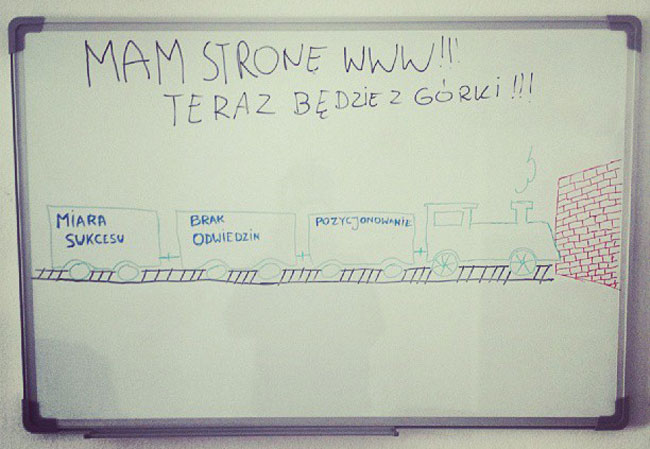 MAM STRONĘ WWW!!!
TERAZ BĘDZIE Z GÓRKI!!!
MIARA
SUKCESU
BRAK
ODWIEDZIN
POZYCJONOWANIE